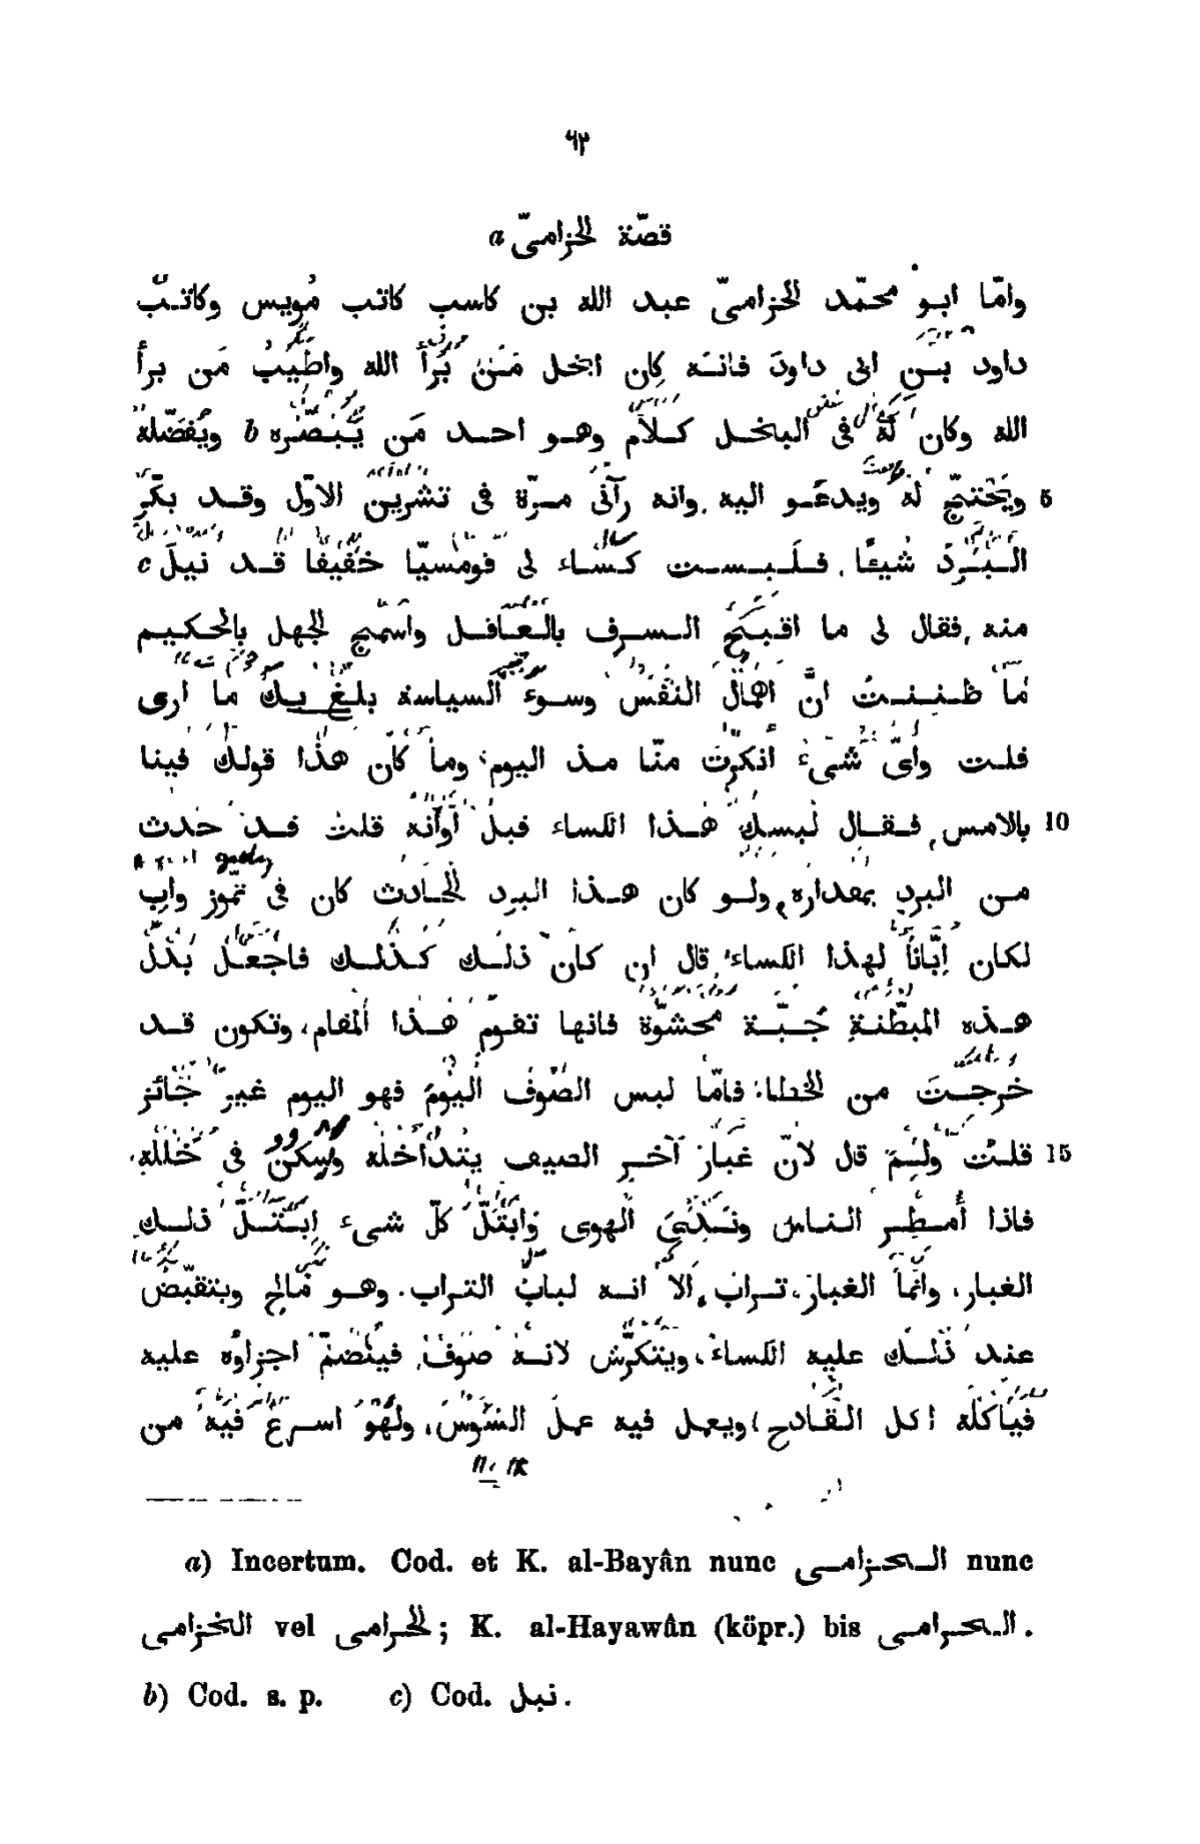 ٦٣
قصّة الخزامىّ a
وامّا ابو محمّد الخزامىّ عبد الله بن كاسب كاتب مُويس وكاتب
داود بن ابى داود فانّه كان ابخل مَن بَرَأَ الله واطيَبُ مَن برأ
الله وكان لهُ فى البخل كلام وهو احد مَن يَنْصُره b ويُفضّله
5 ويَحْتجّ له ويدعو اليه، وانه رآنى مرّة فى تشرين الاوّل وقد بكّر
البَرْدُ شيئًا، فلبست كساء لى قومسيّا خفيفا قد نيلَ c
منه، فقال لى ما اقبَحَ السرف بالعاقل واسمج الجهل بالحكيم
ما ظننتُ انّ اهمال النفس وسوء السياسة بلغ بك ما ارى
قلت وأىّ شىء أنكرْتَ منّا مذ اليوم، وما كان هذا قولك فينا
10 بالامس، فقال لبسك هذا الكساء قبل أوانه قلت قد حدث
من البرد بمقداره، ولو كان هذا البرد الحادث كان فى تموز واب
لكان إبّانًا لهذا الكساء، قال ان كان ذلك كذلك فاجعَلْ بَدَل
هذه المبطّنة جُبّة محشوّة فانها تقوم هذا المقام، وتكون قد
خرجتَ من الخطا، فامّا لبس الصوف اليوم فهو اليوم غير جائز
15 قلتُ ولِمَ قال لانّ غبار آخر الصيف يتداخله ويسكن فى خلله،
فاذا أُمطر الناس ونَدِىَ الهوى وابتلّ كلّ شىء ابتلّ ذلك
الغبار، وانّما الغبار تراب، الّا انه لباب التراب، وهو مالح ويتقبّض
عند ذلك عليه الكساء، ويتكرّش لانه صوف، فينضمّ اجزاوه عليه
فيأكله اكل القادح، ويعمل فيه عمل السوس، ولهو اسرع فيه من
a) Incertum. Cod. et K. al-Bayân nunc الحزامى nunc
الخزامى vel الحرامى; K. al-Hayawân (köpr.) bis الحرامى.
b) Cod. s. p. c) Cod. نبل.